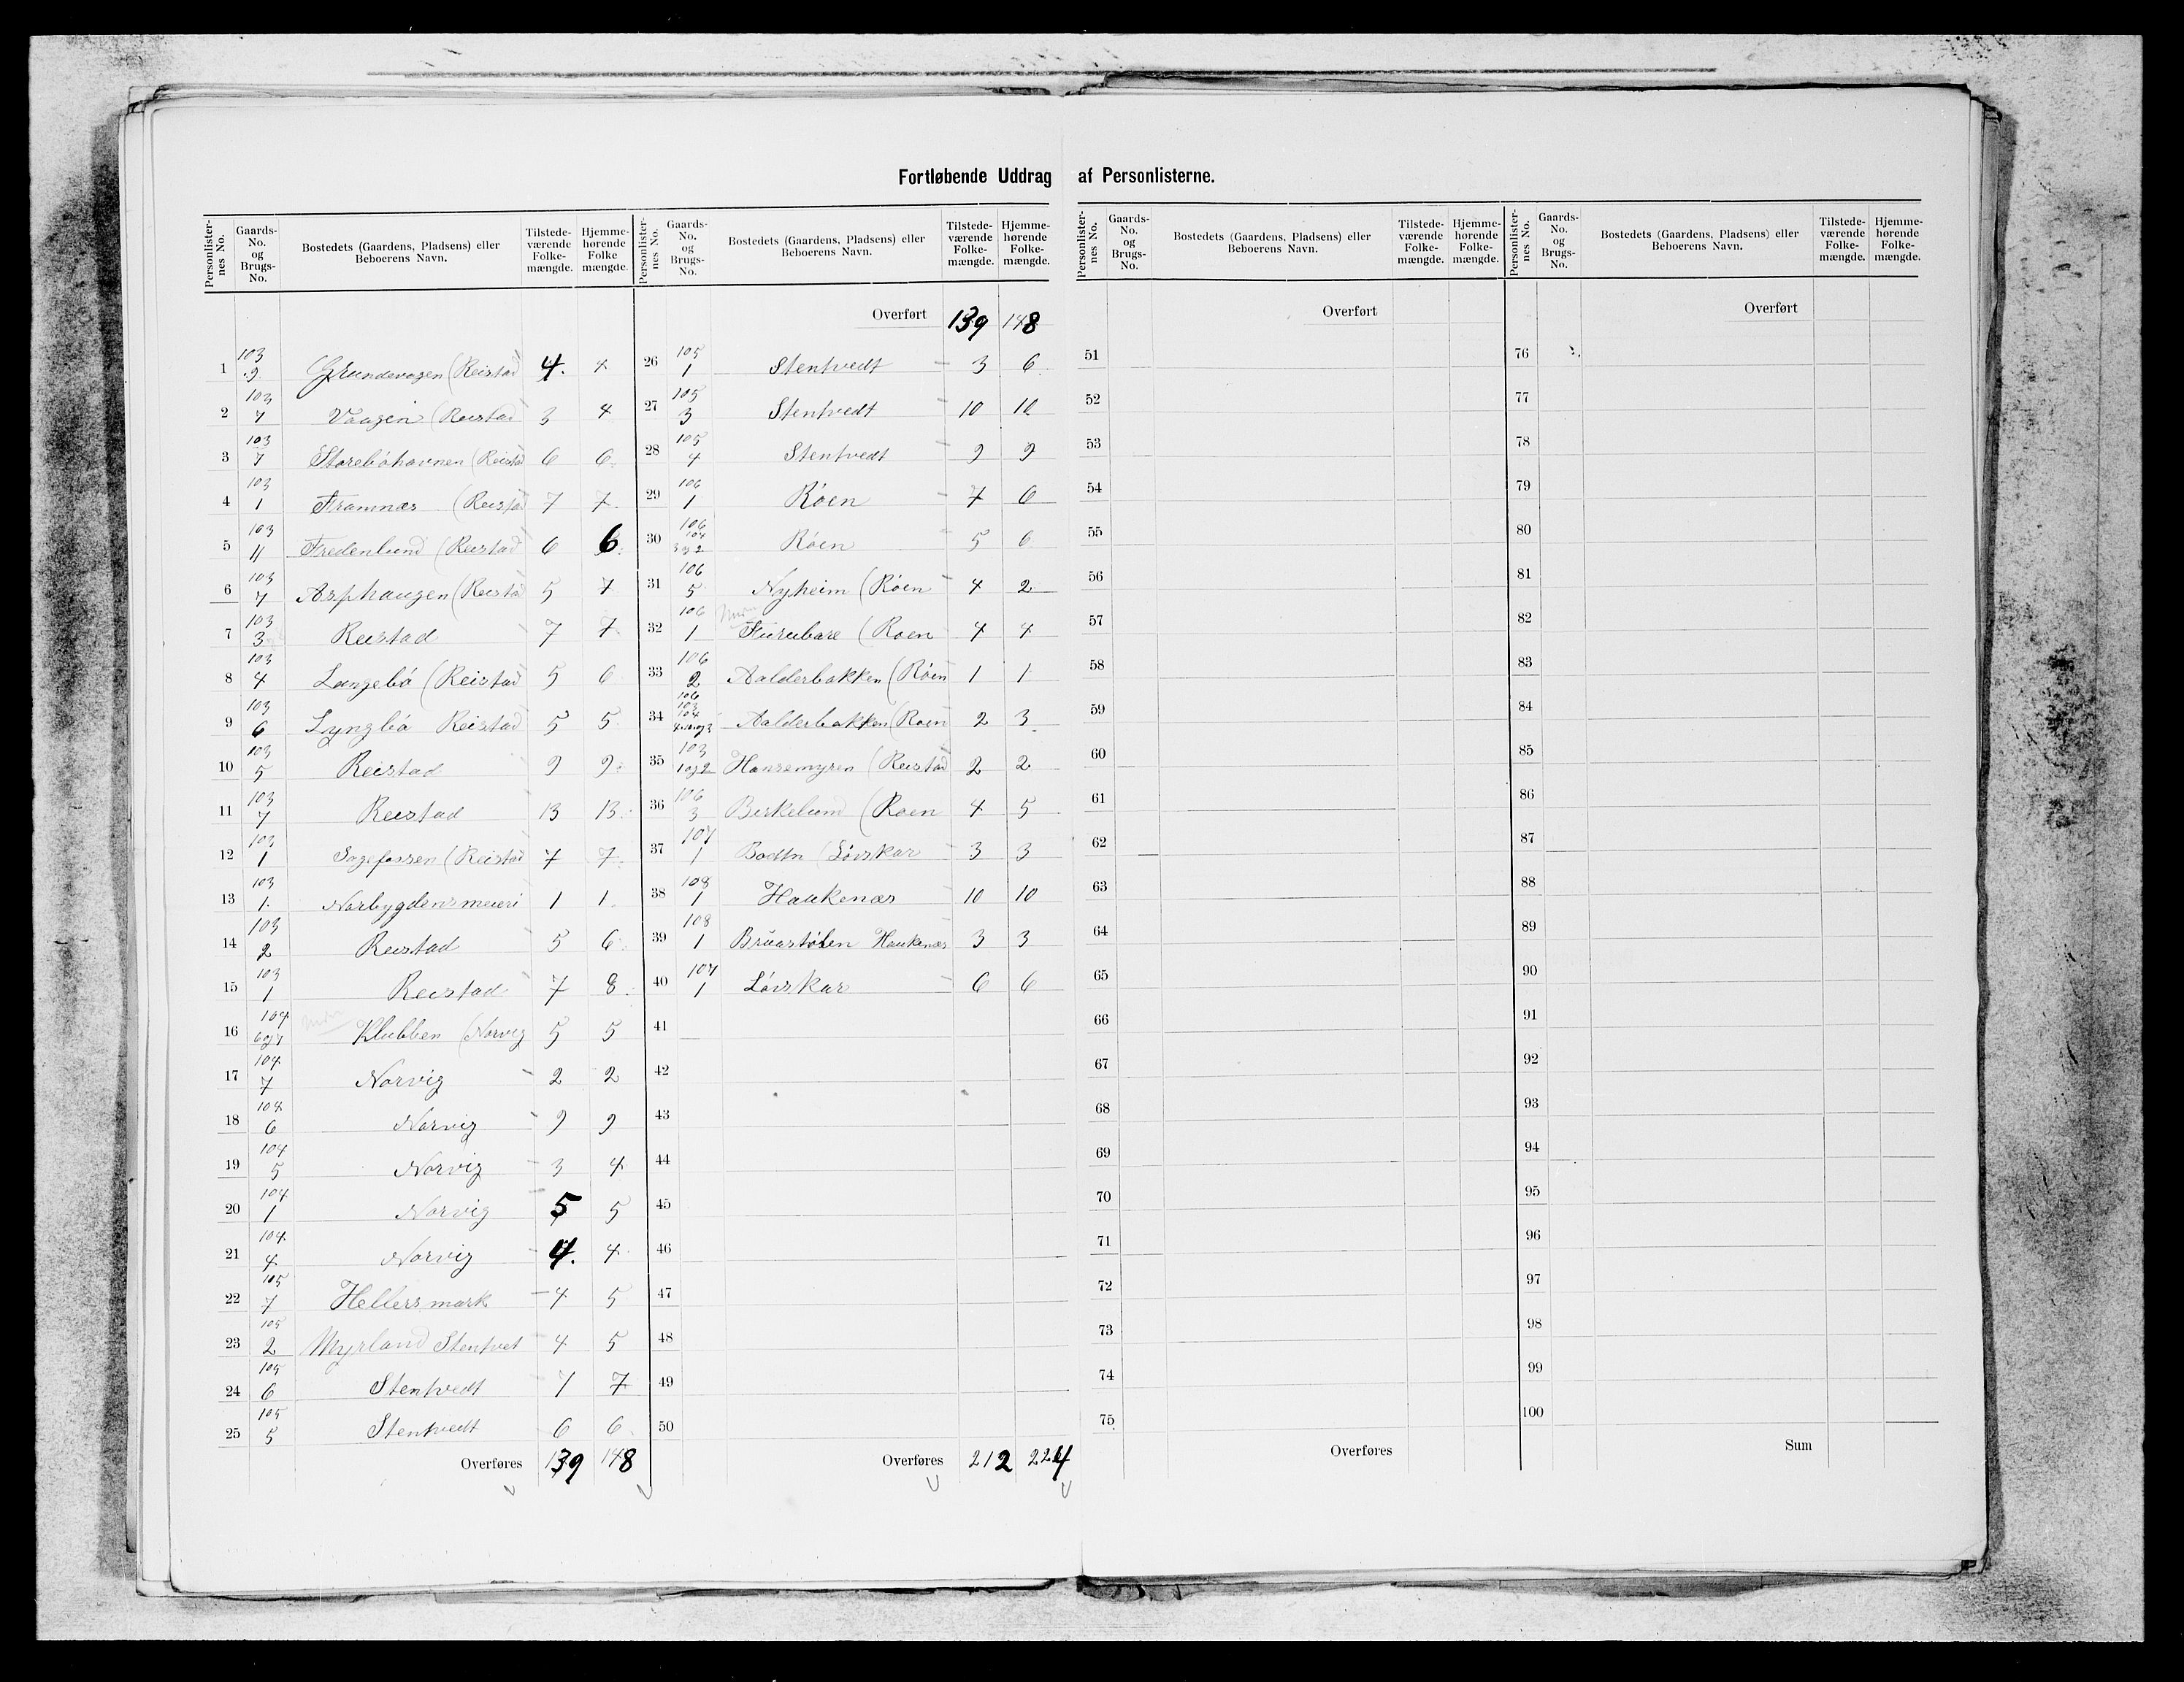 Fortløbende Uddrag af Personlisterne.
Personlister-nes No. | Gaards-No. og Brugs-No. | Bostedets (Gaardens, Pladsens) eller Beboerens Navn. | Tilstede-værende Folke-mængde. | Hjemme-hørende Folke mængde.
1 | 103 9 | Grundevagen (Reistad | 4. | 4
2 | 103 7 | Vaagen (Reistad | 3 | 4
3 | 103 7 | Storebøhavnen (Reistad | 6 | 6
4 | 103 1 | Framnæs (Reistad | 7 | 7
5 | 103 11 | Fredenlund (Reistad | 6 | 6
6 | 103 7 | Asphaugen (Reistad | 5 | 7
7 | 103 3 | Reistad | 7 | 7
8 | 103 4 | Langebø (Reistad | 5 | 6
9 | 103 6 | Lyngbø Reistad | 5 | 5
10 | 103 5 | Reistad | 9 | 9
11 | 103 7 | Reistad | 13 | 13
12 | 103 1 | Sagefossen (Reistad | 7 | 7
13 | 103 1 | Norbygdens meieri | 1 | 1
14 | 103 2 | Reistad | 5 | 6
15 | 103 1 | Reistad | 7 | 8
16 | 104 6 og 7 | Klubben (Norvig | 5 | 5
17 | 104 7 | Norvig | 2 | 2
18 | 104 6 | Norvig | 9 | 9
19 | 104 5 | Norvig | 3 | 4
20 | 104 1 | Norvig | 5 | 5
21 | 104 4 | Norvig | 4. | 4
22 | 105 7 | Hellersmark | 4 | 5
23 | 105 2 | Myrland Stentvet | 4 | 5
24 | 105 6 | Stentvedt | 7 | 7
25 | 105 5 | Stentvedt | 6 | 6
Overføres | 139 | 148
Personlister-nes No. | Gaards-No. og Brugs-No. | Bostedets (Gaardens, Pladsens) eller Beboerens Navn. | Tilstede-værende Folke-mængde. | Hjemme-hørende Folke-mængde.
Overført | 139 | 148
26 | 105 1 | Stentvedt | 3 | 6
27 | 105 3 | Stentvedt | 10 | 10
28 | 105 4 | Stentvedt | 9 | 9
29 | 106 1 | Røen | 7 | 6
30 | 106 104 | Røen | 5 | 6
31 | 106 5 | Nyheim (Røen | 4 | 2
32 | 106 1 | Furubare (Roen | 4 | 4
33 | 106 2 | Aalderbakken (Røen | 1 | 1
34 | 106 103 104 | Aalderbakken (Roen | 2 | 3
35 | 103 1 og 2 | Hansemyren (Reistad | 2 | 2
36 | 106 3 | Birkelund (Roen | 4 | 5
37 | 107 1 | Bodtn (Løvskar | 3 | 3
38 | 108 1 | Haukenæs | 10 | 10
39 | 108 1 | Bruastølen Haukenæs | 3 | 3
40 | 107 1 | Løvskar | 6 | 6
41
42
43
44
45
46
47
48
49
50
Overføres | 212 | 224
Personlister-nes No. | Gaards-No. og Brugs-No. | Bostedets (Gaardens, Pladsens) eller Beboerens Navn. | Tilstede-værende Folke-mængde. | Hjemme-hørende Folke-mængde.
Overført
51
52
53
54
55
56
57
58
59
60
61
62
63
64
65
66
67
68
69
70
71
72
73
74
75
Overføres
Personlister-nes No. | Gaards-No. og Brugs-No. | Bostedets (Gaardens, Pladsens) eller Beboerens Navn. | Tilstede-værende Folke-mængde. | Hjemme-hørende Folke-mængde.
Overført
76
77
78
79
80
81
82
83
84
85
86
87
88
89
90
91
92
93
94
95
96
97
98
99
100
Sum